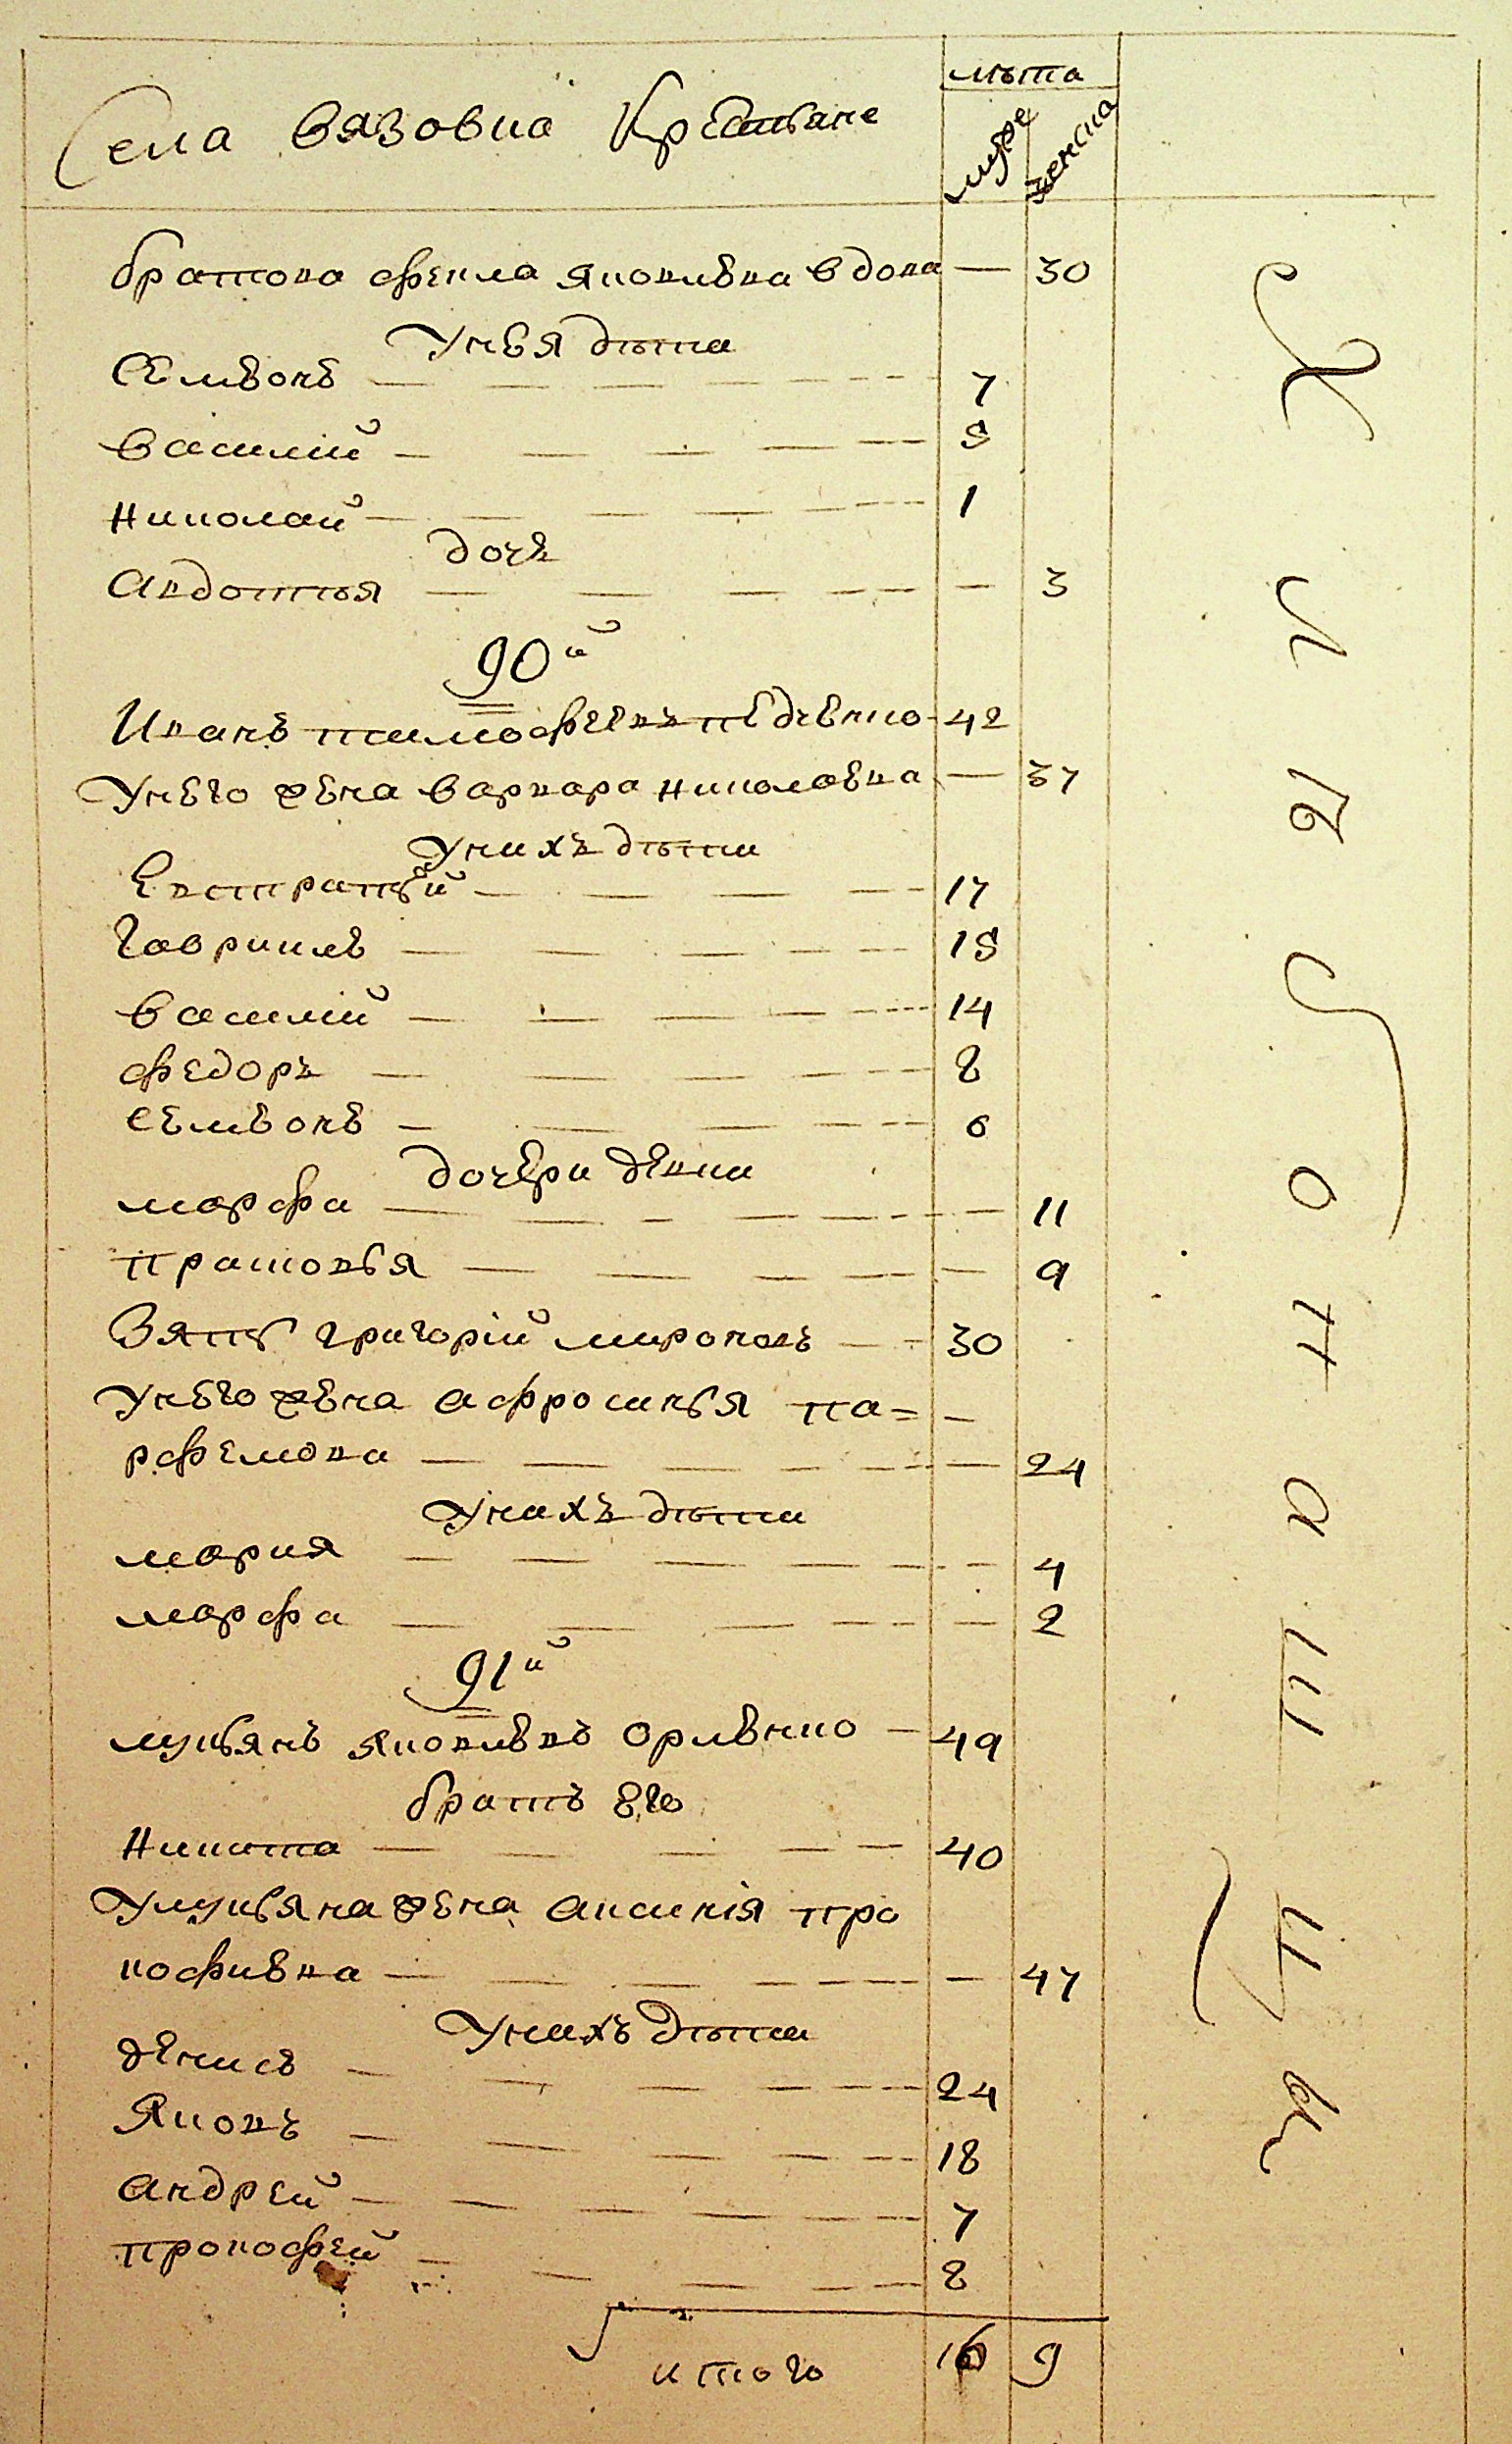 лѣта
Села Вязовка Крестьяне
муже
женска
братова Фекла Яковлевна вдова — 30
Унея дѣти
Семенъ — 7
Василій — 5
Николай — 1
дочь
Авдотья — 3
90й
Иванъ Тимофеевъ 42
Унего жена Варвара Николаевна — 37
Унихъ дѣти
Евстратій — 17
Гавриилъ — 15
Василій — 14
Федоръ — 8
Семенъ — 6
дочери девки
Марфа — 11
Прасковья — 9
Зять Григорій Мироновъ — 30
Унего жена Афросинья Па=
рфемовна — 24
Унихъ дѣти
Мария — 4
Марфа — 2
91й
Лукьянъ Яковлевъ Орленко — 49
братъ его
Никита — 40
Улукьяна жена Аксинія Про
кофивна — 47
Унихъ дѣти
Денисъ — 24
Яковъ — 18
Андрей — 7
Прокофей — 8
итого 16 9